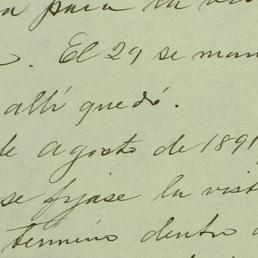 para la vis
. El 29 se man
allí quedó.
de agosto de 1891
se fijase la vist
termino dentro